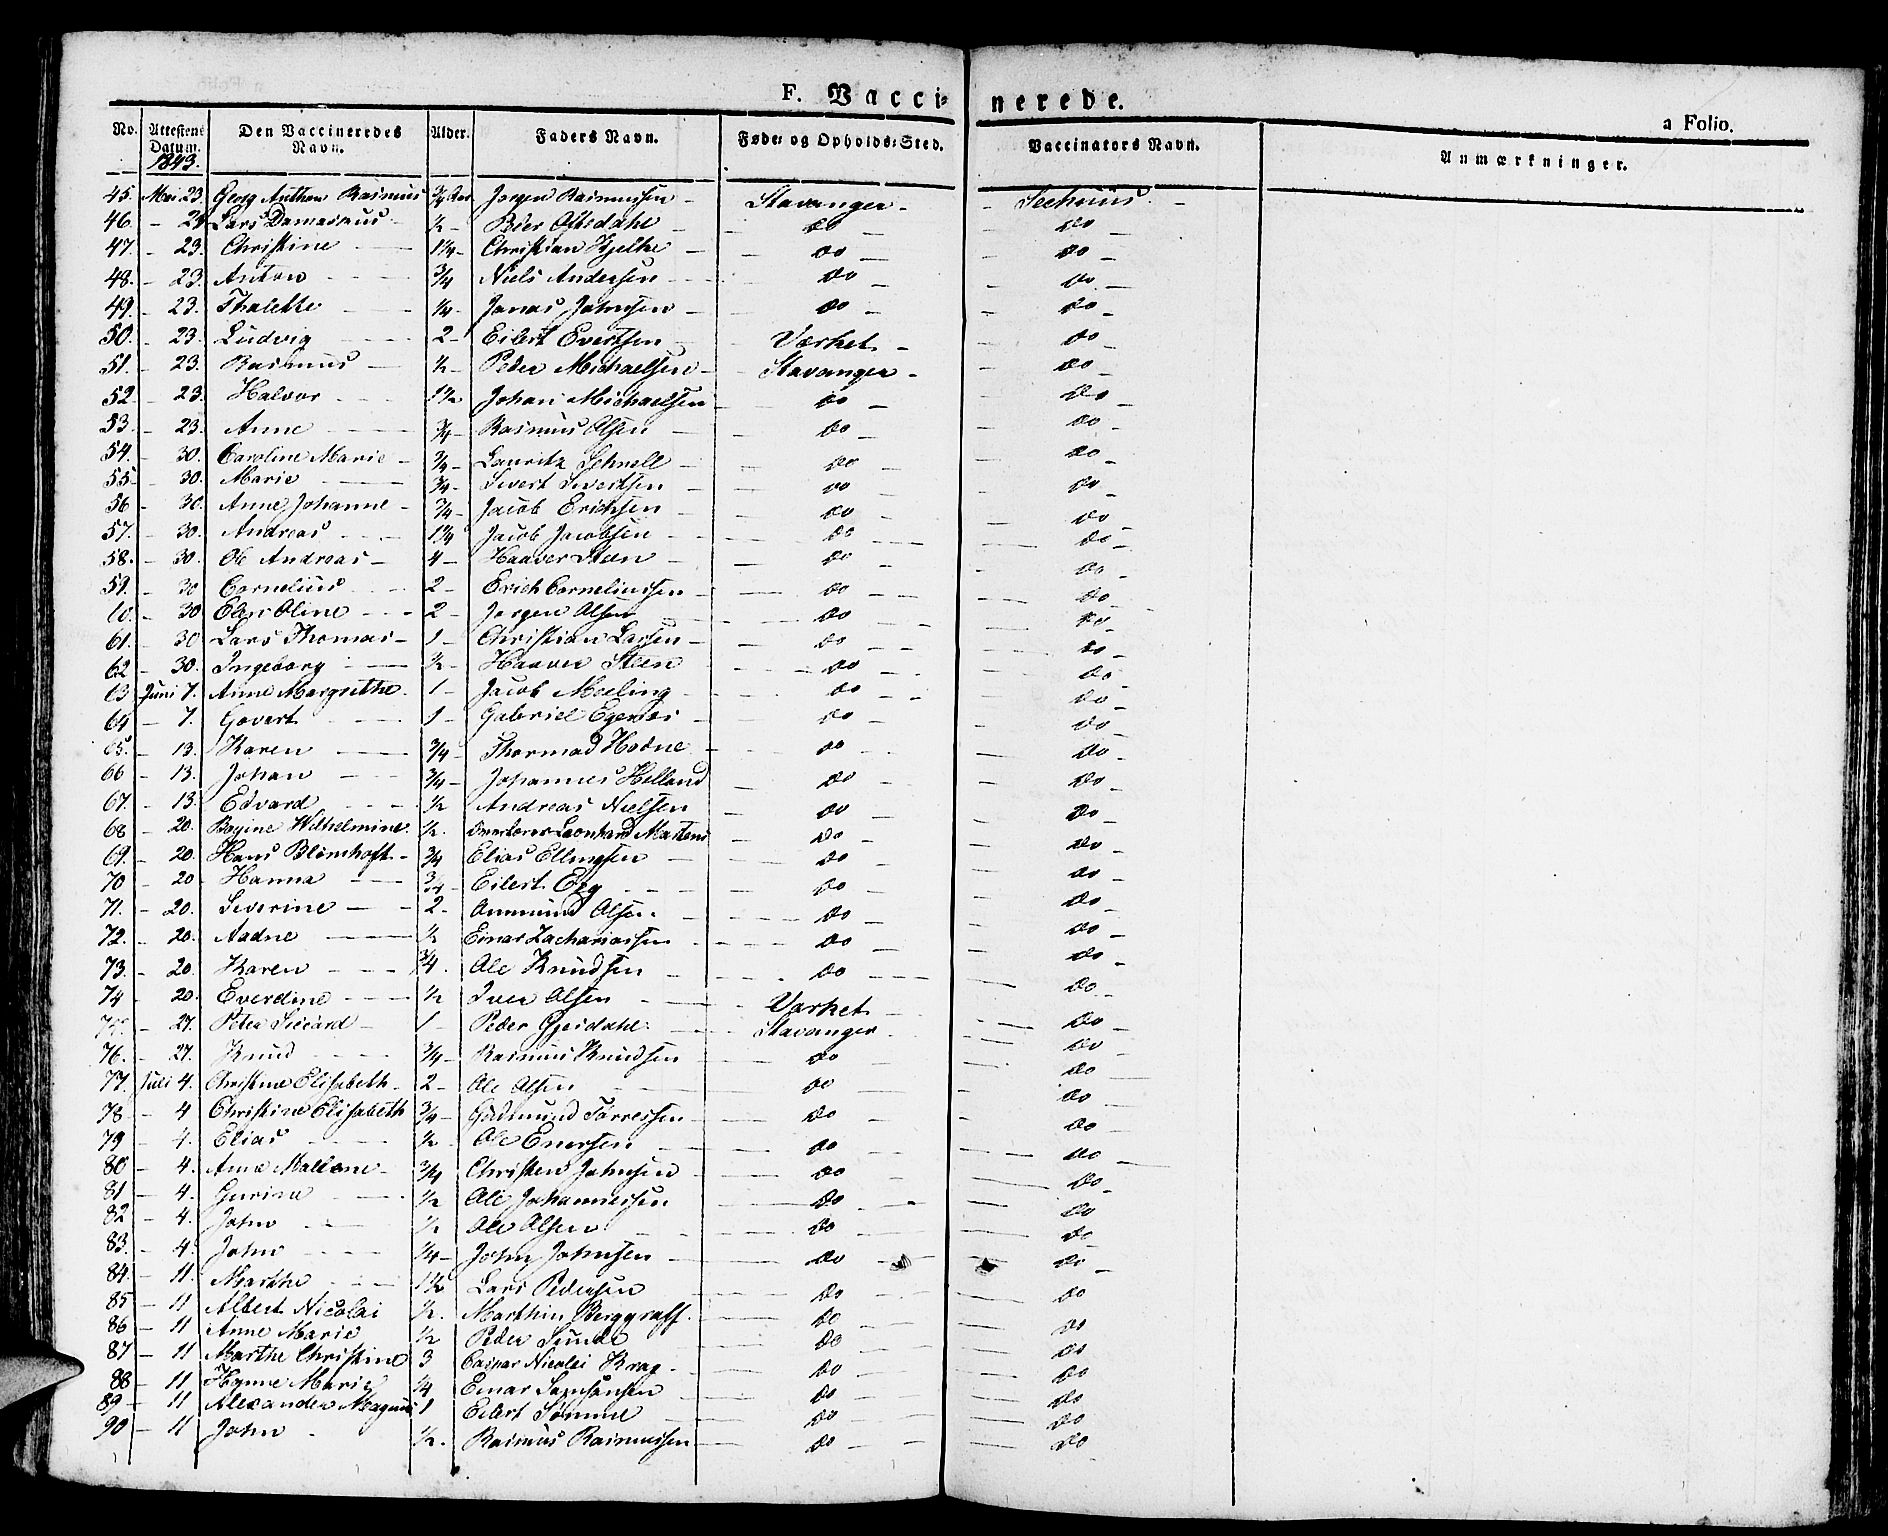 F. Vaccinerede.
a Folio.
No. Attestens Datum. Den Vaccineredes Navn. Alder. Faders Navn. Føde- og Opholds-Sted. Vaccinators Navn. Anmærkninger.
1843.
45. Mai 23. Georg Anthon Rasmus 3/4 Aar Jørgen Rasmussen - Stavanger -
46. - 23 Lars ½ - Peder do - do -
47. - 23. Christine 1¼ - Christian Kjelke - do - do -
48. - 23. Anton 3/4 Niels Andersen - do - do -
49. - 23. Thalette ¼ - Jonas Johnsen - do - do -
50. - 23. Ludvig 2 - Eilert Evertsen Værket - do -
51. - 23. Rasmus ½ - Peder Michaelsen - Stavanger - do -
52 - 23. Halvor 1½ Johan Michaelsen do - do -
53. - 23. Anne 3/4 - Rasmus Olsen - do - do -
54. - 30. Caroline Marie - 3/4 - Lauritz Schnell - do - do -
55 - 30. Marie 3/4 - Sivert Sivertsen - do - do -
56 - 30. Anne Johanne - 3/4 - Jacob Erichsen do - do -
57. - 30. Andreas 1¼ Jacob Jacobsen - do - do -
58. - 30. Ole Andreas - 4 - Haaver Steen - do - do -
59. - 30 Cornelius 2 - Erich Corneliussen - do - do -
60. - 30 Oline 2 - Jørgen Olsen do - do -
61. - 30 Lars Thomas - 1 - Christian Larsen - do - do -
62 - 30. Ingeborg ½ - Haaver Steen do - do -
63 Juni 7. Anne Margrethe. 1 - Jacob Meeling - do - do -
64 - 7. Govert 1 - Gabriel Egenes - do - do -
65. - 13. Karen 3/4 Thormod Hodne - do do -
66 - 13. Johan 3/4 - Johannes Helland do - do -
67. - 13. Edvard ½ Andreas Nielsen do - do -
68 - 20. Bogine Wilhelmine. ½. Leonhard Martens do - do -
69. - 20. Hans Blomhoft - 3/4 Elias Ellingsen - do do -
70 - 20. Hanna 3/4 - Eilert Egg do - do -
71. - 20. Severine 2 - Ommund Olsen - do - do -
72. - 20. Aadne ½ Einar Zachariassen do - do -
73. - 20. Karen 3/4. Ole Knudsen - do do -
74 - 20. Everdine ½ Iver Olsen Værket do -
75. - 27. Peter 1 - Peder Gjesdahl Stavanger do -
76. - 27. Knud 3/4 - Rasmus Knudsen do do -
77. Juli 4. Christine Elisabeth. 2 - Ole Olsen do do
78 - 4 Christine Elisabeth 3/4 - Gudmund Tørressen - do do
79 - 4. Elias ½ - Ole Enersen do do
80 - 4. Anne Mallene - 3/4 Christen Johnsen do do
81 - 4. Gurine ½ Ole Johannessen do do -
82 - 4. John ½ Ole Olsen do do
83. - 4. John ¼ - John Johnsen do do
84. - 11. Marthe 1½ Lars Pedersen do do -
85 - 11 Albert Nicolai ½. Marthin Berggraff. do do
86 - 11 Anne Marie ½ Peder Sunde do do
87 - 11 Marthe Christine 3 Casper Nicolai Krag - do do
88 - 11 Marie ¼ Einar do do
89 - 11 Alexander Magnus 1 Eilert Sømme do do
90 - 11 John ½. Rasmus Rasmussen do - do